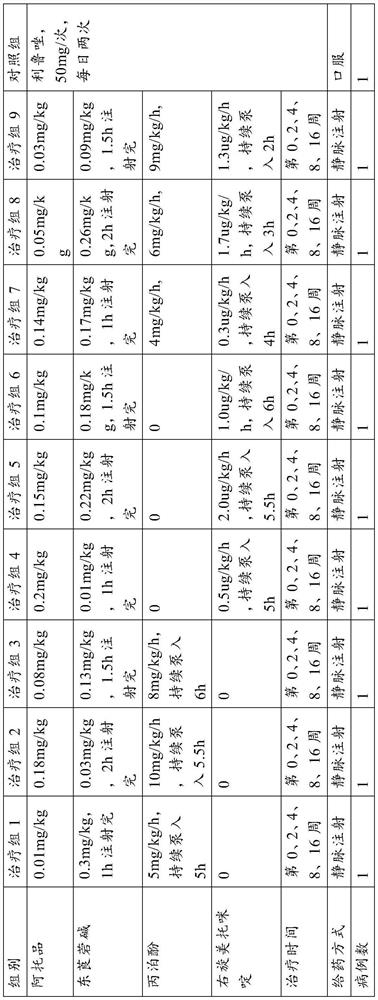 组别
治疗组 1
治疗组 2
治疗组 3
治疗组 4
治疗组 5
治疗组 6
治疗组 7
治疗组 8
治疗组 9
对照组
阿托品
0.01mg/kg
0.18mg/kg
0.08mg/kg
0.2mg/kg
0.15mg/kg
0.1mg/kg
0.14mg/kg
0.05mg/k
g
0.03mg/kg
利鲁唑，
50mg/次，
每日两次
东莨菪碱
0.3mg/kg,
1h 注射完
0.03mg/kg
，2h 注射
完
0.13mg/kg
，1.5h 注
射完
0.01mg/kg
，1h 注射
完
0.22mg/kg
，2h 注射
完
0.18mg/k
g，1.5h 注
射完
0.17mg/kg
，1h 注射
完
0.26mg/k
g，2h 注射
完
0.09mg/kg
，1.5h 注
射完
丙泊酚
5mg/kg/h,
持续泵入
5h
10mg/kg/h
，持续泵
入 5.5h
8mg/kg/h,
持续泵入
6h
0
0
0
4mg/kg/h,
6mg/kg/h,
9mg/kg/h,
右旋美托咪
啶
0
0
0
0.5ug/kg/h
，持续泵入
5h
2.0ug/kg/h
，持续泵入
5.5h
1.0ug/kg/
h，持续泵
入 6h
0.3ug/kg/h
，持续泵入
4h
1.7ug/kg/
h，持续泵
入 3h
1.3ug/kg/h
，持续泵
入 2h
治疗时间
第 0、2、4、
8、16 周
第 0、2、4、
8、16 周
第 0、2、4、
8、16 周
第 0、2、4、
8、16 周
第 0、2、4、
8、16 周
第 0、2、4、
8、16 周
第 0、2、4、
8、16 周
第 0、2、4、
8、16 周
第 0、2、4、
8、16 周
给药方式
静脉注射
静脉注射
静脉注射
静脉注射
静脉注射
静脉注射
静脉注射
静脉注射
静脉注射
口服
病例数
1
1
1
1
1
1
1
1
1
1